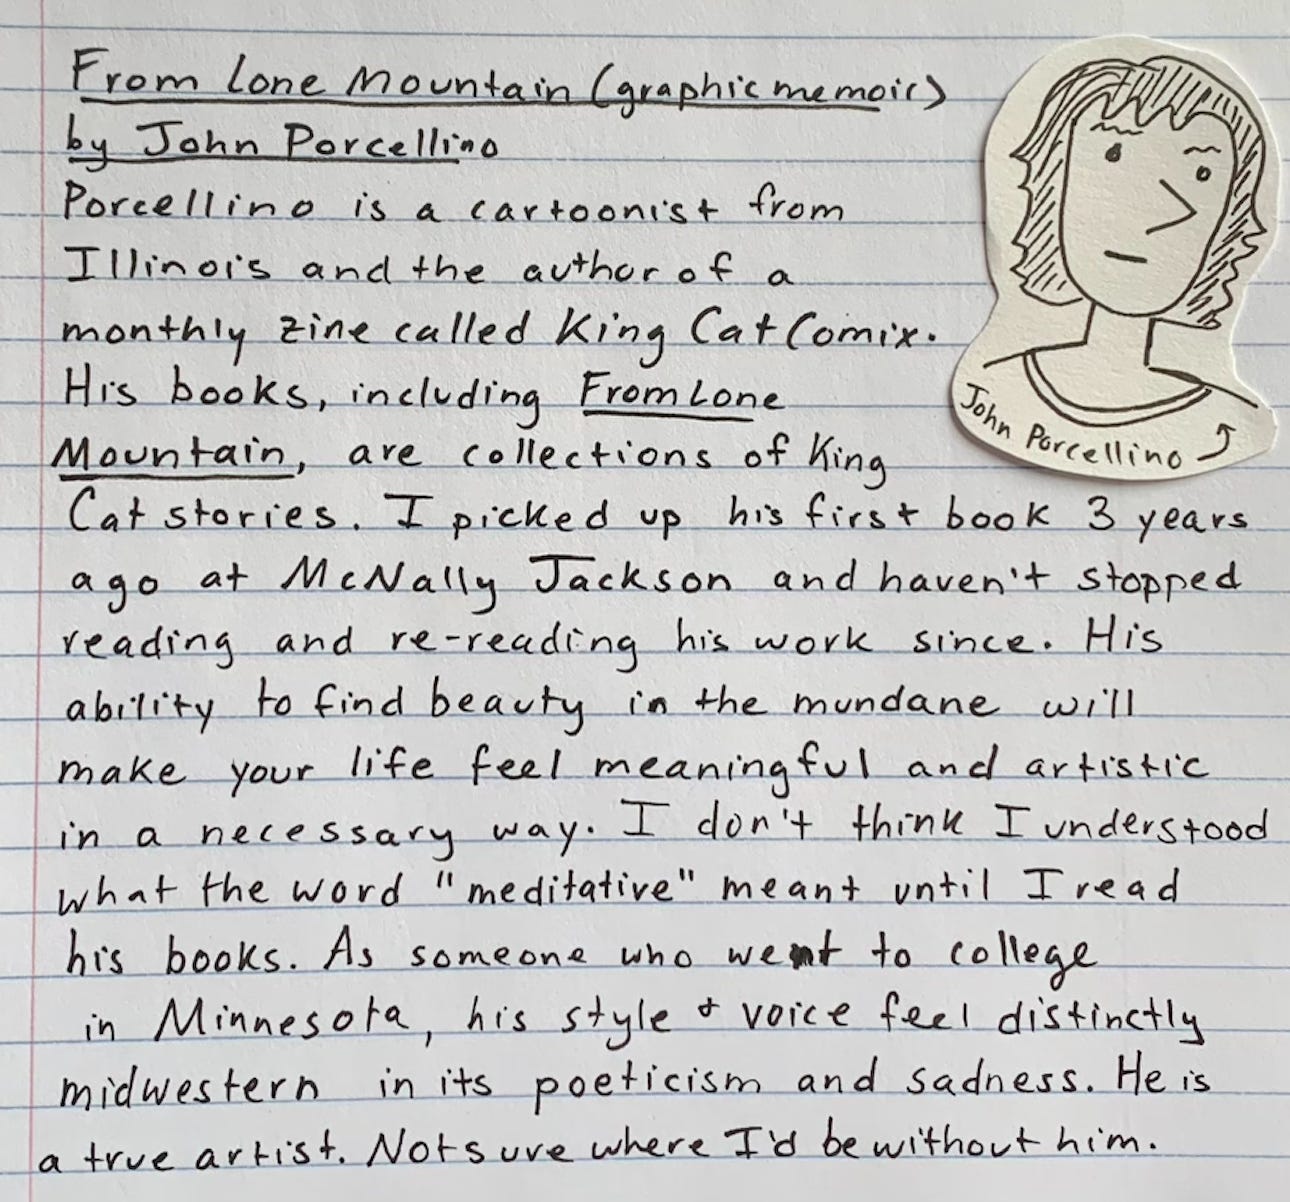 From Lone Mountain (graphic memoir)
by John Porcellino
Porcellino is a cartoonist from
Illinois and the author of a
monthly zine called King Cat Comix.
His books, including From Lone
Mountain, are collections of King
Cat stories. I picked up his first book 3 years
ago at McNally Jackson and haven't stopped
reading and re-reading his work since. His
ability to find beauty in the mundane will
make your life feel meaningful and artistic
in a necessary way. I don't think I understood
what the word "meditative" meant until I read
his books. As someone who went to college
in Minnesota, his style & voice feel distinctly
midwestern in its poeticism and sadness. He is
a true artist. Not sure where I'd be without him.
John Porcellino